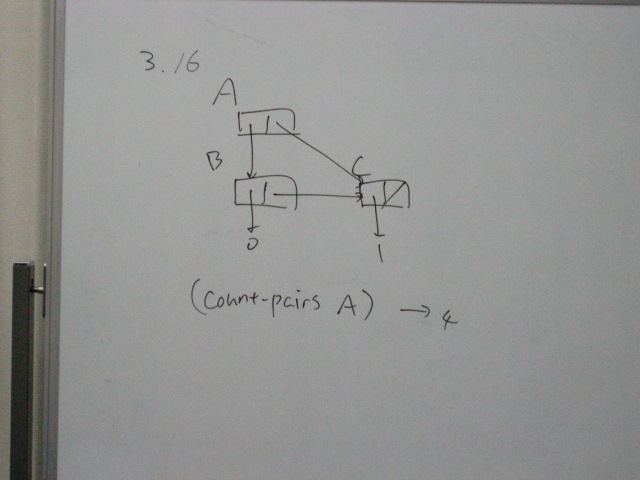 3.16
A
B
C
0
1
(count-pairs A) → 4